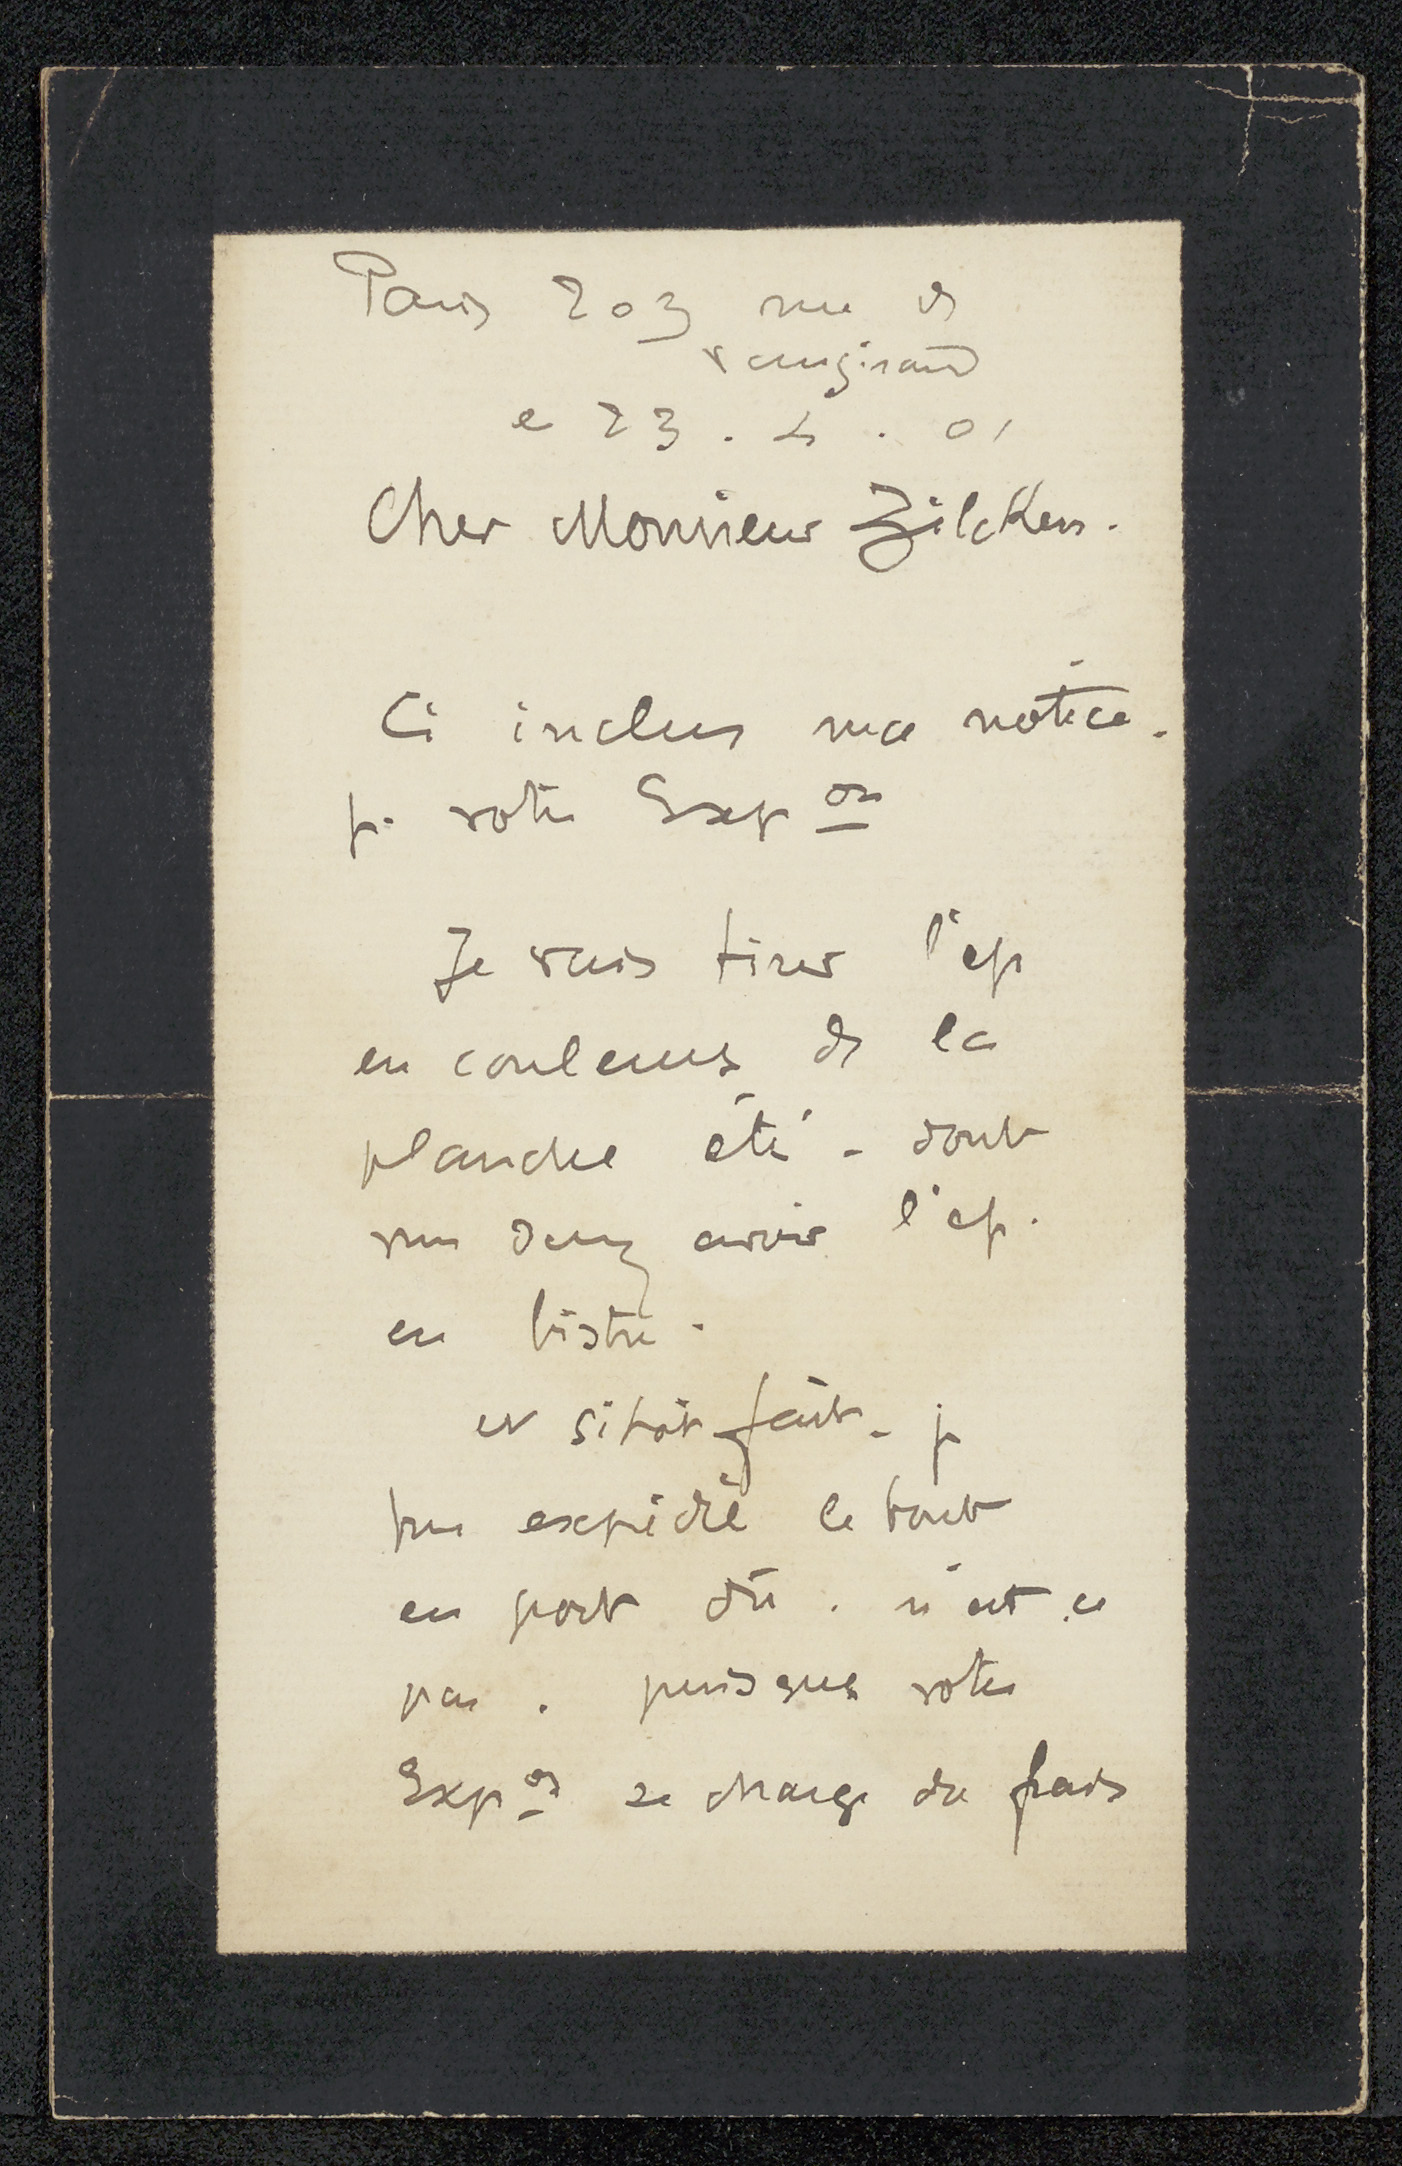 Paris 203 rue de
vaugirard
le 23 . 4 . 01
Cher Monsieur Zilcken.
Ci inclus ma notice.
p. votre Expon
Je vais tirer l'ep
en couleurs de la
planche été - dont
vous devez avoir l'ep.
en bistre.
et sitôt fait - je
vous expédie le tout
en port dû. n'est ce
pas. puisque votre
Expon se charge des frais